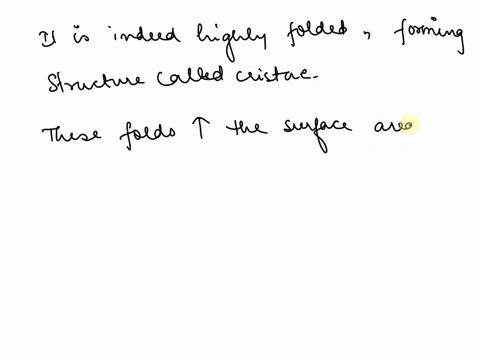 It is indeed highly folded, forming
structure called cristae.
These folds ↑ the surface area